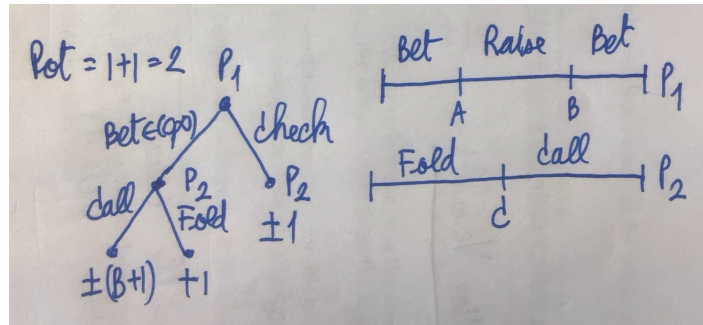 Pot = 1+1=2
P1
Bet∈(0,∞)
check
call
P2
Fold
P2
±1
±(B+1)
+1
Bet Raise Bet
A B
P1
Fold call
C
P2